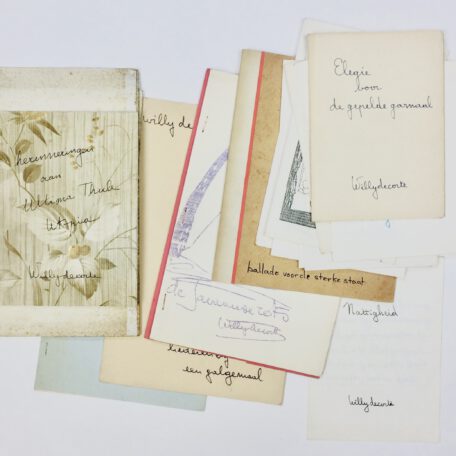 herinneringen
aan
Ultima Thule
Willydecorte
willy de
de
Willydecorte
liederen bij
een galgemaal
ballade voor de sterke staat
Elegie
voor
de gepelde garnaal
Willydecorte
Nattigheid
Willydecorte